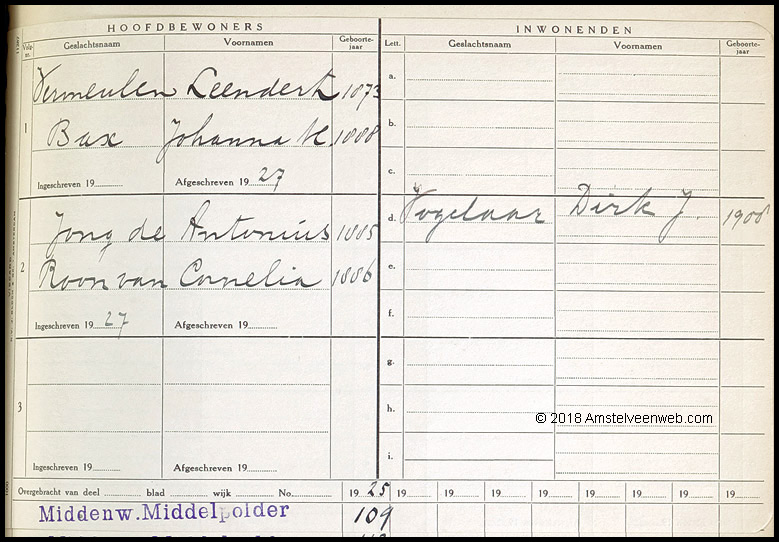 HOOFDBEWONERS INWONENDEN
Volg-nr. Geslachtsnaam Voornamen Geboorte-jaar Lett. Geslachtsnaam Voornamen Geboorte-jaar
a.
Vermeulen Leendert 1873
1 b.
Bax Johanna M. 1888
c.
Ingeschreven 19 Afgeschreven 19 27
d. Vogelaar Dirk J. 1908
Jong de Antonius 1885
2 e.
Roon van Cornelia 1886
f.
Ingeschreven 19 27 Afgeschreven 19
g.
3 h.
© 2018 Amstelveenweb.com
i.
Ingeschreven 19 Afgeschreven 19
Overgebracht van deel blad wijk No. 19 25 19 19 19 19 19 19 19 19
Middenw. Middelpolder 109